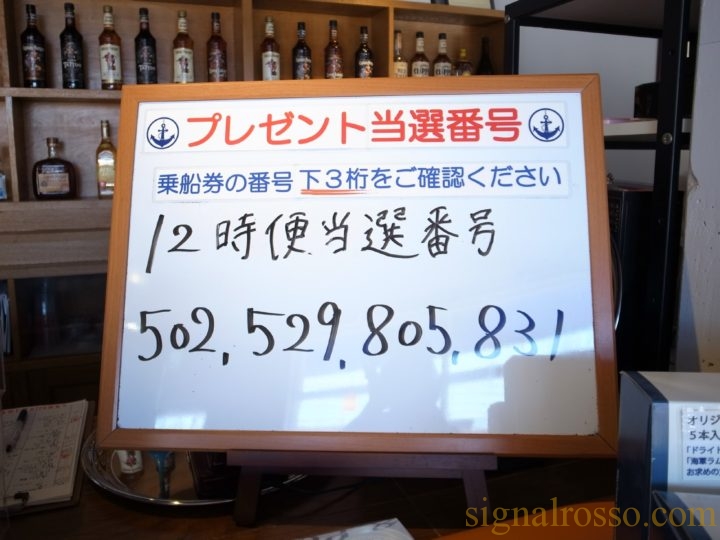 プレゼント当選番号
乗船券の番号下3桁をご確認ください
12時便当選番号
502, 529, 805, 831
オリジ
5本入
「ドライ
「海軍ラム
お求めの
signalrosso.com